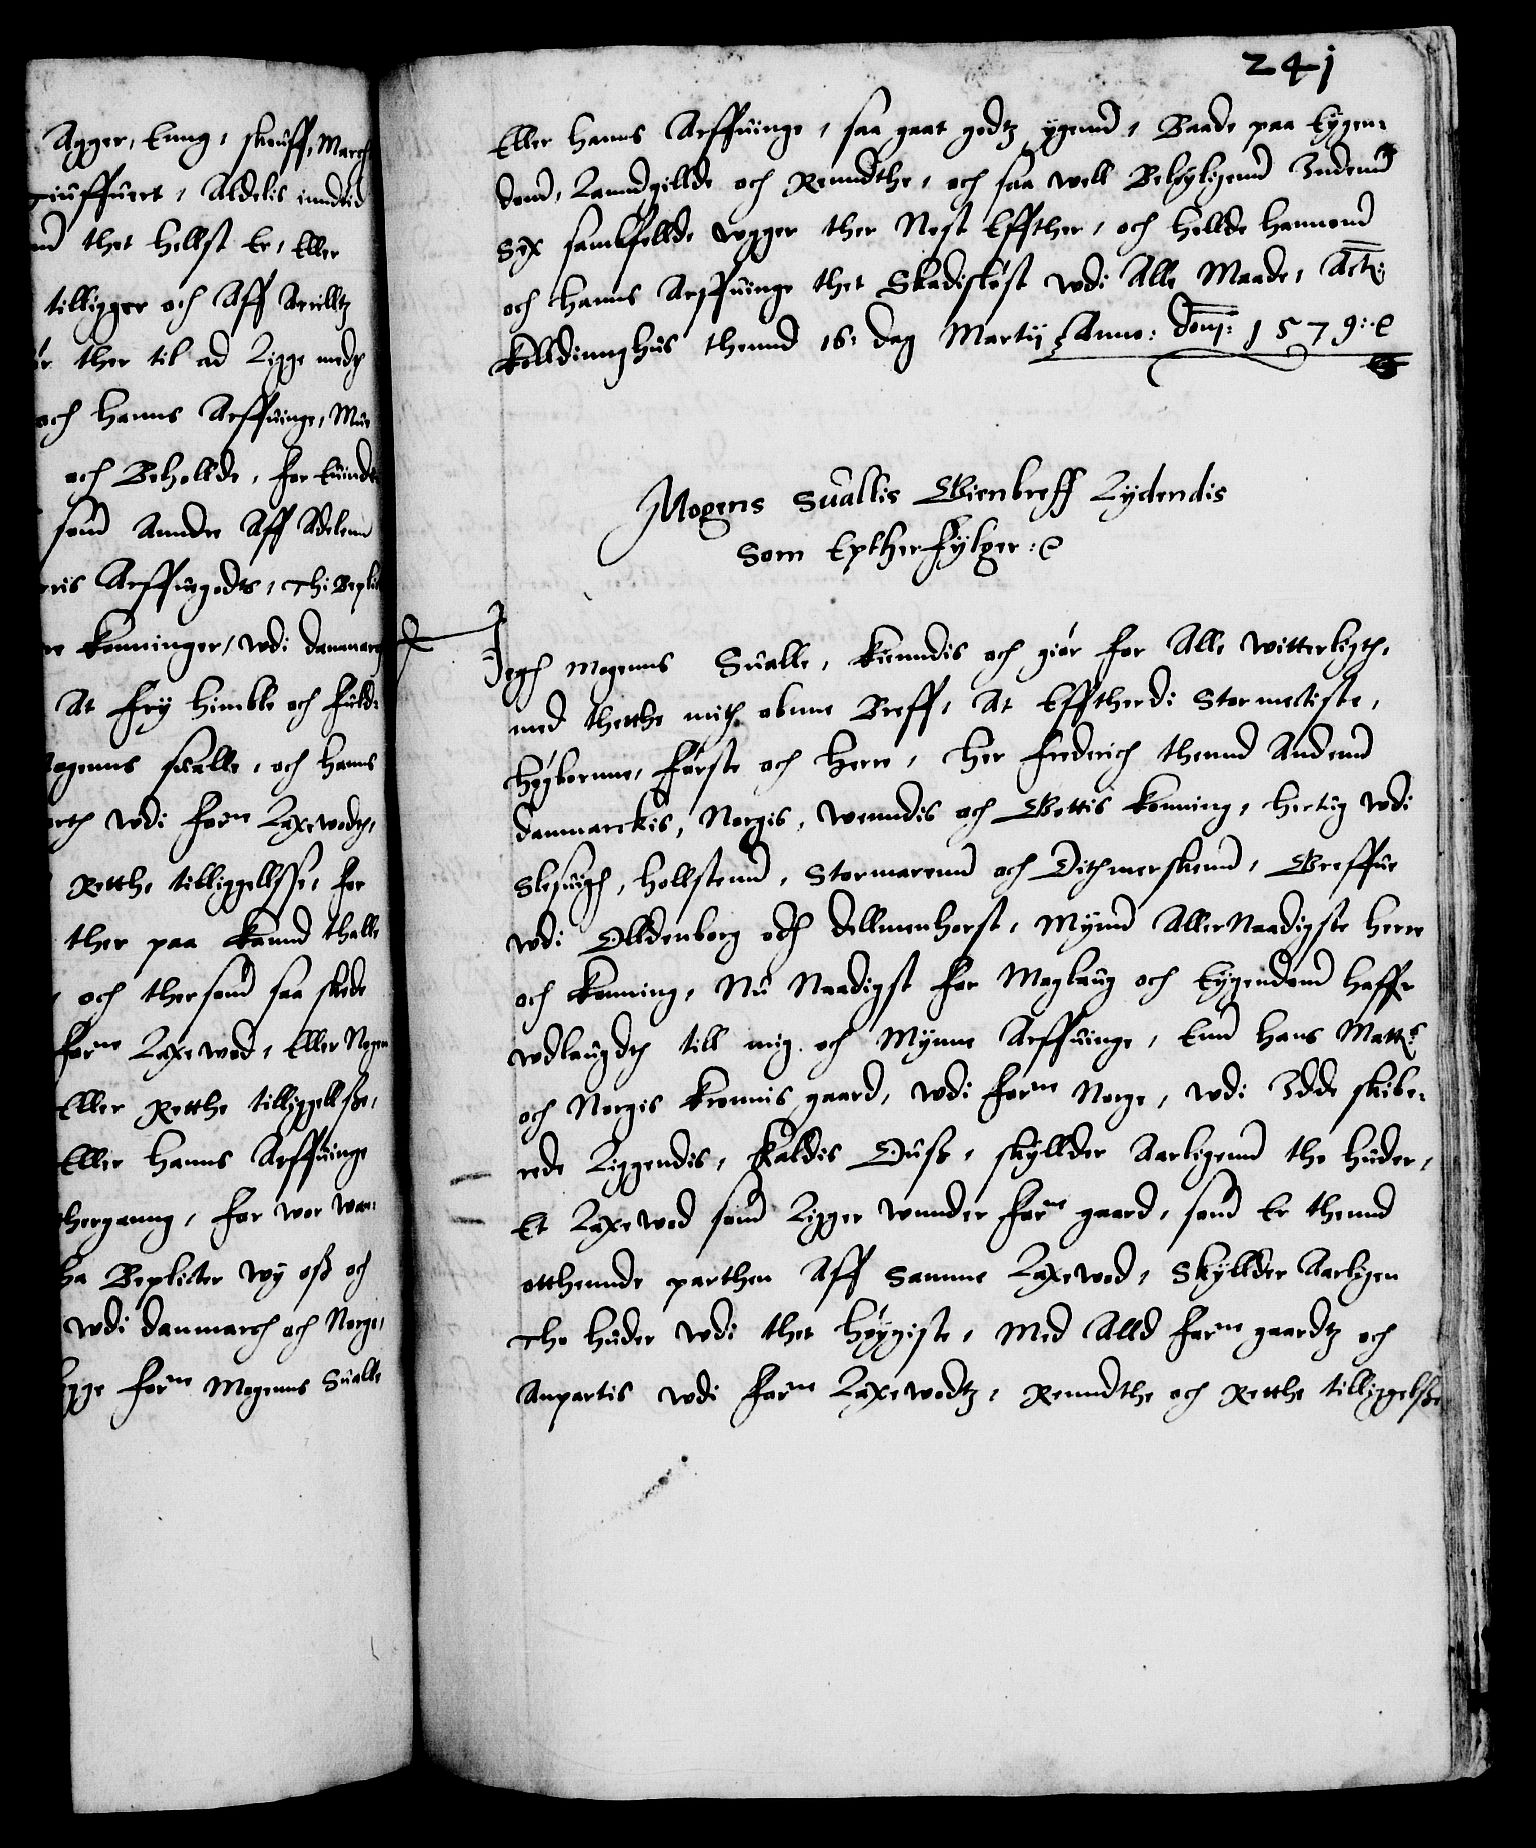 Agger, Enng, skuff, March
giuffuert, Aldelis inndtid
thet helst Er, Eller
tilligger och Aff Arrilltz
ther til ad Ligge medh
och hanns Arffuinge, Mue
och Beholde, for Euinde
som Anndre Aff Adelenn
Arffuegodts, Thi Beplict
Konninger, wdi danmarc
At fry himble och fuld
ogenns sualle, och hans
wdi forne Laxewodh,
Retthe tilliggellsse, for
ther paa kannd thalle
och thersom saa skede
forne Laxewod, Eller Nogen
Eller Retthe tilliggellsse,
Eller hanns Arffuinge
herganng, for wor war
ha Beplicter wy oss och
wdi danmarch och Norge,
ligge forne Mogenns Sualle
241
Eller hanns Arffuinge, saa gaat godtz ygend, Baade paa Eygen-
dom, Lanndgillde och Renndthe, och saa well Beleyligennd Indenn
Sex samfellde wgger ther Nest Effther, och holde hannom
och hanns Arffuinge thet Skadisløst wdi Alle Maade, Act:
Kolldinnghus thennd 16. dag Martij Anno: domj: 1579:
Mogens Suallis Gienbreff Lydendis
Som Epther fylger:
Jegh Mogenns Sualle, Kienndis och giør for Alle witterligth,
med thette mith obnne Breff, At Efftherdi Stormectiste,
høybornne, første och herre, her frederich thennd Anden
danmarckis, Norgis, wenndis och Gottis Konning, hertug wdi
Slesuigh, hollstenn, Stormarenn och Dithmerskenn, Greffue
wdi Olldenborg och dellmenhorst, Mynn Aller Naadigste herre
och Konning, Nu Naadigst for Maglaug och Eygendom haffr
wdlaugdh till mig och Mynne Arffuinge, Enn hans Matts
och Norgis Kronnis gaard, wdi forne Norge, wdi Idde skibe-
rede Liggendis, Kaldis Ouss, skyllder Aarligenn tho huder,
Et Laxewod som Ligger wnnder forne gaard, som Er thennd
otthennde parthen Aff Samme Laxewod, Skyllder Aarligen
Tho huder wdi thet høygiste, Med Alld forne gaardtz och
Anpartis wdi forne Laxewodtz, Renndthe och Retthe tilliggelsse